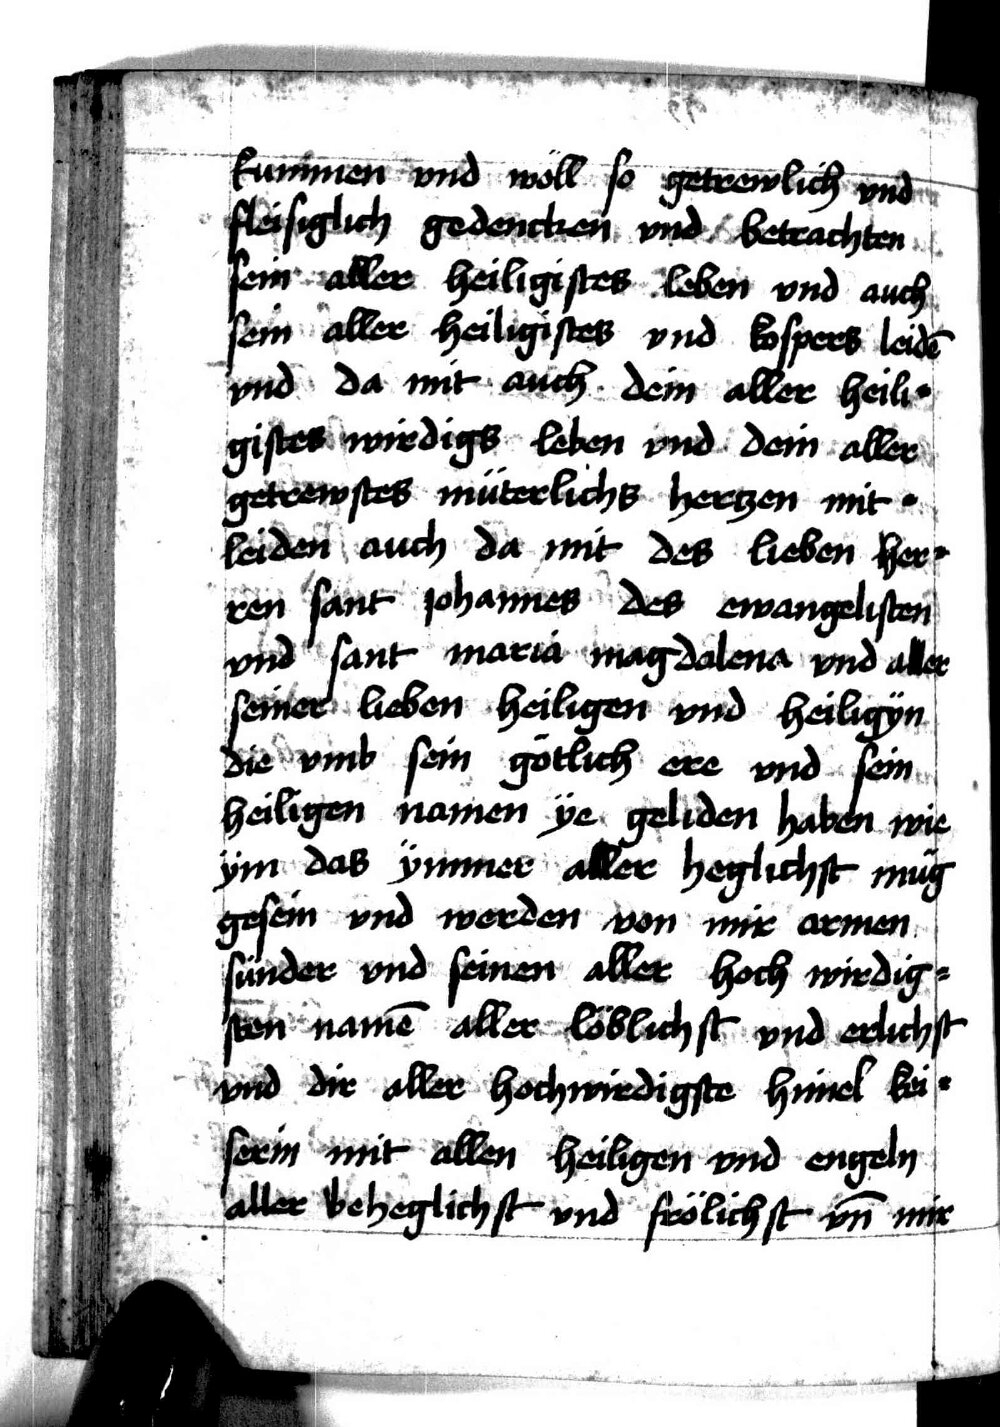 kummen vnd wöll so getrewlich vnd
fleisiglich gedencken vnd betrachten
sein aller heiligistes leben vnd auch
sein aller heiligistes vnd kospers leidē
vnd da mit auch dein aller heili-
gistes wirdigs leben vnd dein aller
getrewstes müterlichs hertzen mit-
leiden auch da mit des lieben her-
ren sant johannes des ewangelisten
vnd sant maria magdalena vnd aller
seiner lieben heiligen vnd heiligÿn
die vmb sein götlich ere vnd sein
heiligen namen ÿe geliden haben wie
ÿm das ÿmmer aller heglichst müg
gesein vnd werden von mir armen
sünder vnd seinen aller hoch wirdig=
sten namē aller löblichst vnd erlichst
vnd dir aller hochwirdigste himel kei-
serin mit allen heiligen vnd engeln
aller beheglichst vnd frölichst vn̄ mir